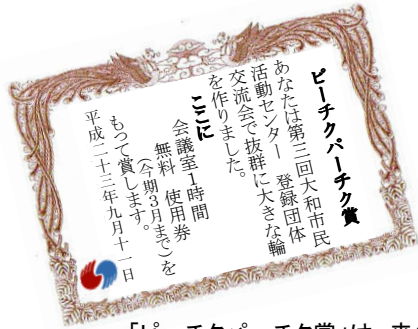 ピーチクパーチク賞
あなたは第三回大和市民
活動センター　登録団体
交流会で抜群に大きな輪
を作りました。
ここに
会議室1時間
無料　使用券
（今期3月まで）を
もって賞します。
平成二十三年九月十一日